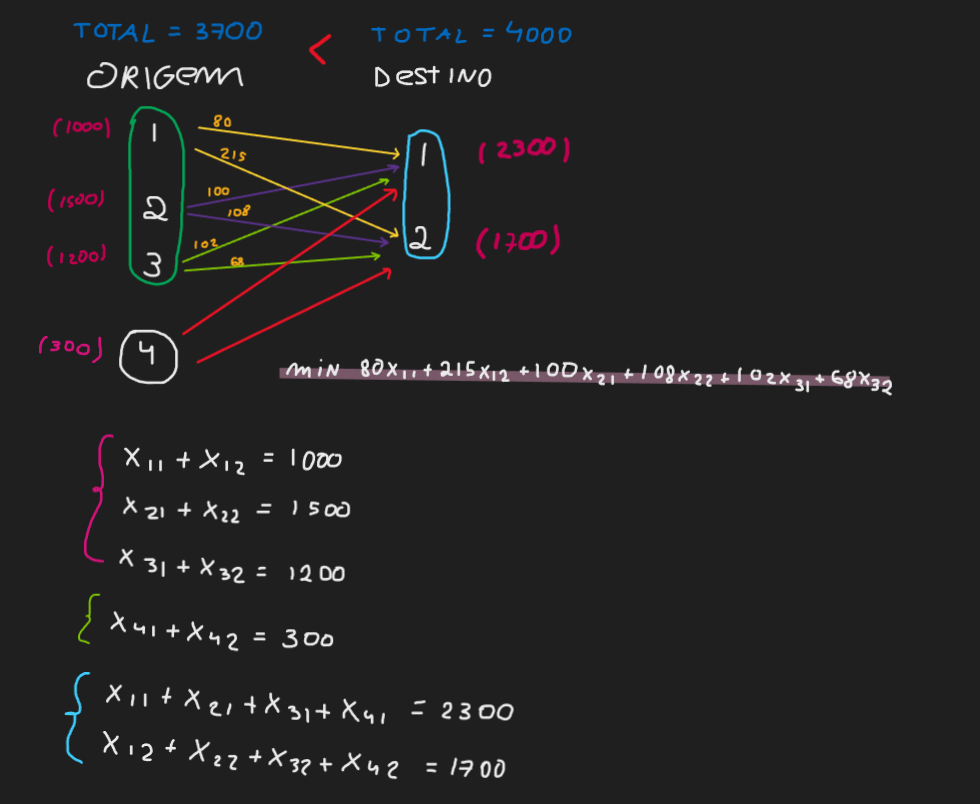 TOTAL = 3700 < TOTAL = 4000
ORIGEM DESTINO
(1000) 1 80 1 (2300)
215
(1500) 2 100
108 2 (1700)
(1200) 3 102
68
(300) 4
min 80x11 + 215x12 + 100x21 + 108x22 + 102x31 + 68x32
x11 + x12 = 1000
x21 + x22 = 1500
x31 + x32 = 1200
x41 + x42 = 300
x11 + x21 + x31 + x41 = 2300
x12 + x22 + x32 + x42 = 1700